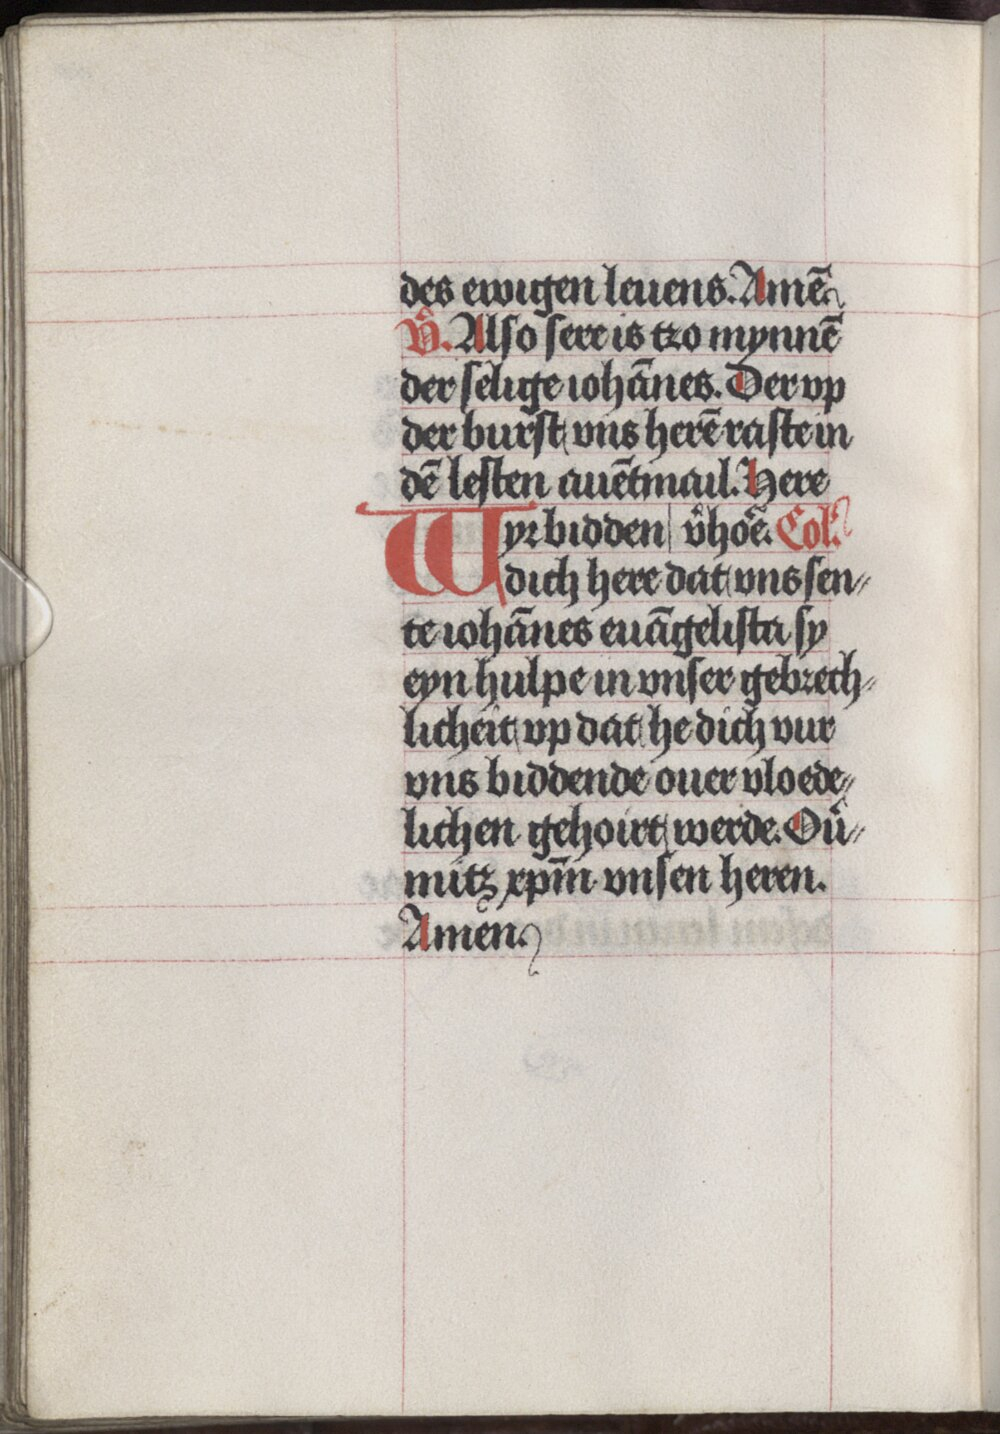 des ewigen leuens. Amē
V̾. Also sere is tzo mynnē
der selige iohānes. Der vp
der burst vns herē raste in
dē lesten auētmail. Here
Wyr bidden v̾hoe. Col.
dich here dat vns sen-
te iohānes euāgelista sy
eyn hulpe in vnser gebrech-
licheit vp dat he dich vur
vns biddende ouer vloede-
lichen gehoirt werde. Ou̾-
mitz xpm̄ vnsen heren.
Amen.